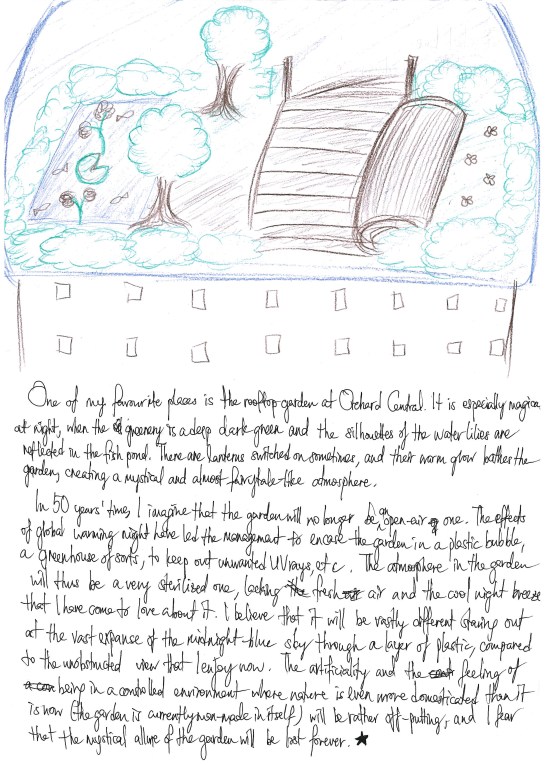 One of my favourite places is the rooftop garden at Orchard Central. It is especially magical
at night, when the greenery is a deep dark green and the silhouettes of the water lilies are
reflected in the fish pond. There are lanterns switched on sometimes, and their warm glow bathes the
garden, creating a mystical and almost fairytale-like atmosphere.
In 50 years' time, I imagine that the garden will no longer be an open-air one. The effects
of global warming might have led the management to encase the garden in a plastic bubble,
a greenhouse of sorts, to keep out unwanted UV rays etc. The atmosphere in the garden
will thus be a very sterilised one, lacking fresh air and the cool night breeze
that I have come to love about it. I believe that it will be vastly different staring out
at the vast expanse of the midnight-blue sky through a layer of plastic, compared
to the unobstructed view that I enjoy now. The artificiality and the feeling of
being in a controlled environment where nature is even more domesticated than it
is now (the garden is currently man-made in itself) will be rather off-putting, and I fear
that the mystical allure of the garden will be lost forever. ★